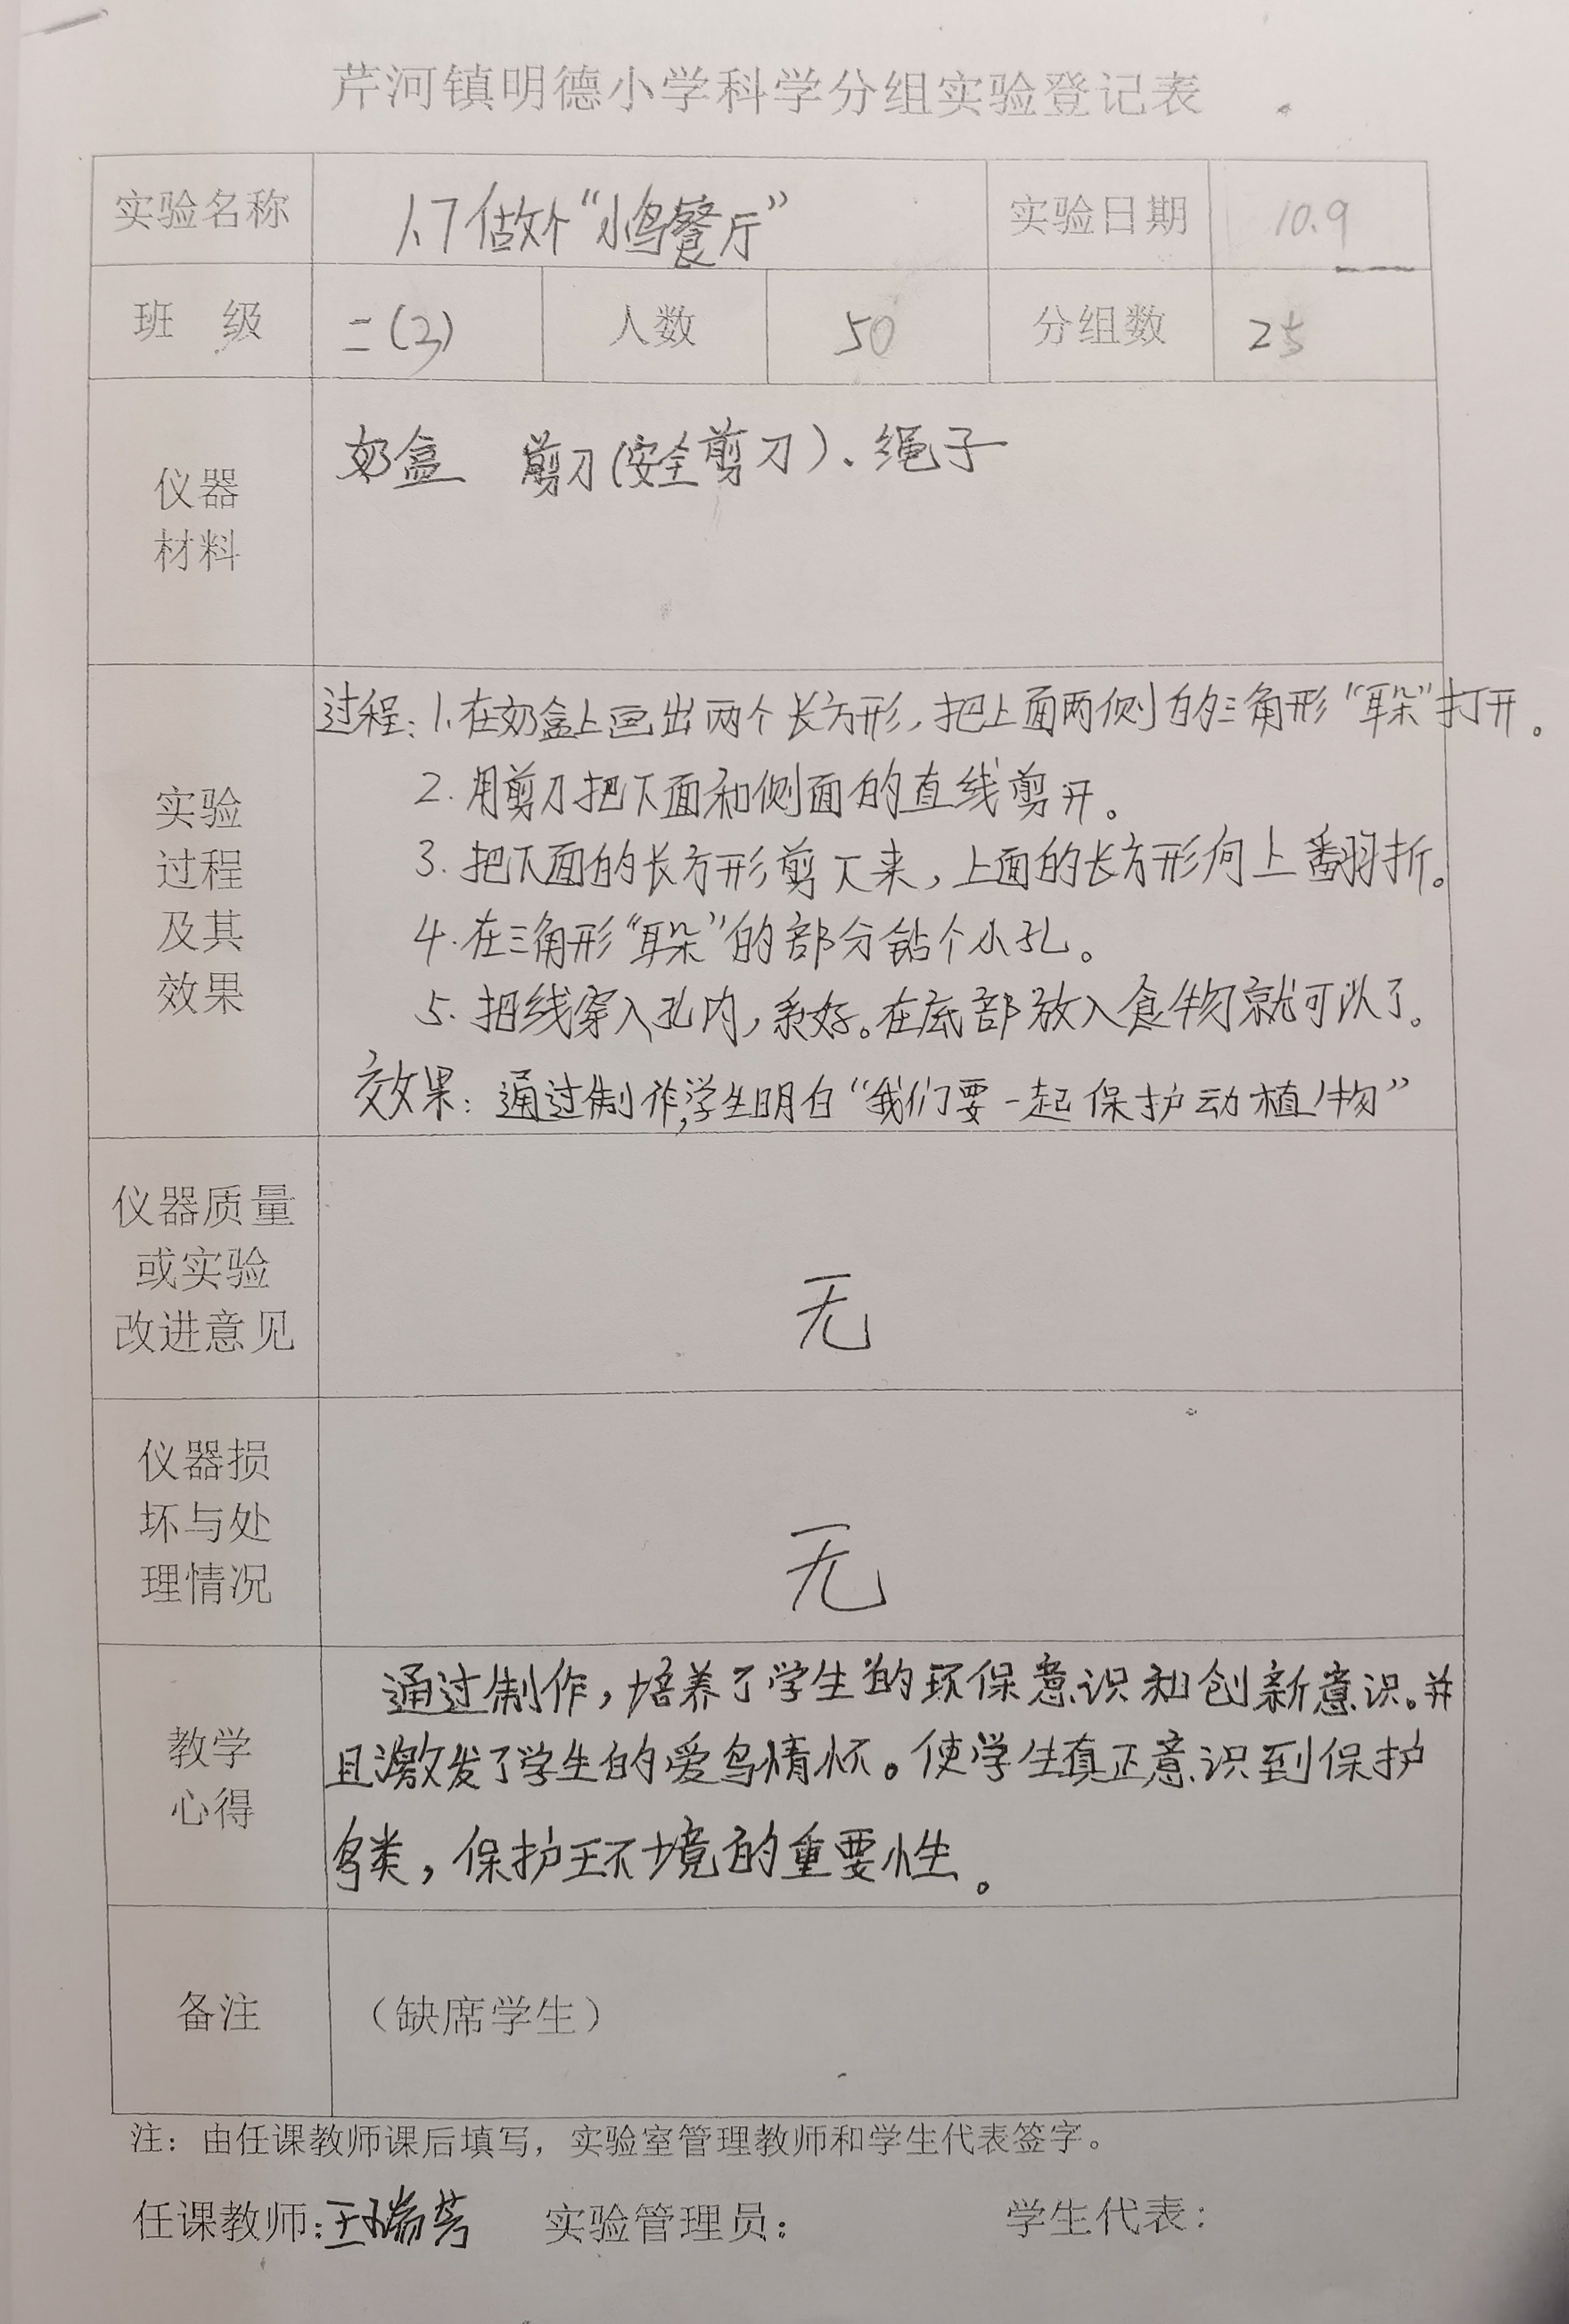 芹河镇明德小学科学分组实验登记表
实验名称 做个“小鸟餐厅” 实验日期 10.9
班 级 二(3) 人数 50 分组数 25
仪器
材料
奶盒 剪刀(安全剪刀)、绳子
实验
过程
及其
效果
过程:1.在奶盒上画出两个长方形,把上面两侧的三角形“耳朵”打开。
2.用剪刀把下面和侧面的直线剪开。
3.把下面的长方形剪下来,上面的长方形向上翻折。
4.在三角形“耳朵”的部分钻个小孔。
5.把线穿入孔内,系好。在底部放入食物就可以了。
效果:通过制作,学生明白“我们要一起保护动植物”
仪器质量
或实验
改进意见
无
仪器损
坏与处
理情况
无
教学
心得
通过制作,培养了学生的环保意识和创新意识。并
且激发了学生的爱鸟情怀。使学生真正意识到保护
鸟类,保护环境的重要性。
备注 (缺席学生)
注:由任课教师课后填写,实验室管理教师和学生代表签字。
任课教师:王瑞芳 实验管理员: 学生代表: